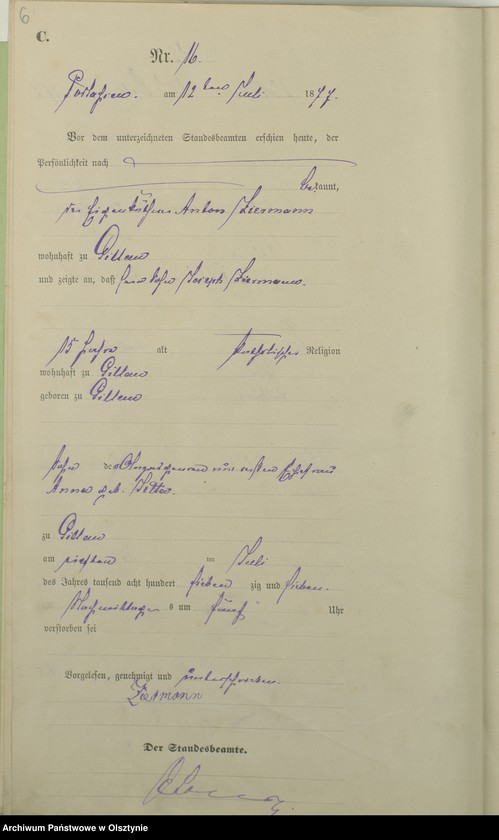 6
C.
Nr. 16
am 12ten Juli 1877.
Vor dem unterzeichneten Standesbeamten erschien heute, der
Persönlichkeit nach
bekannt,
der Eigenkäthner Anton Ziermann
wohnhaft zu Gillau
und zeigte an, daß sein Sohn Joseph Ziermann.
15 Jahre alt katholischer Religion
wohnhaft zu Gillau
geboren zu Gillau
Sohn des und Ehefrau
Anna geb.
zu Gillau
am im Juli
des Jahres tausend acht hundert sieben zig und sieben.
Nachmittags um fünf Uhr
verstorben sei
Vorgelesen, genehmigt und unterschrieben.
Ziermann
Der Standesbeamte.
Archiwum Państwowe w Olsztynie